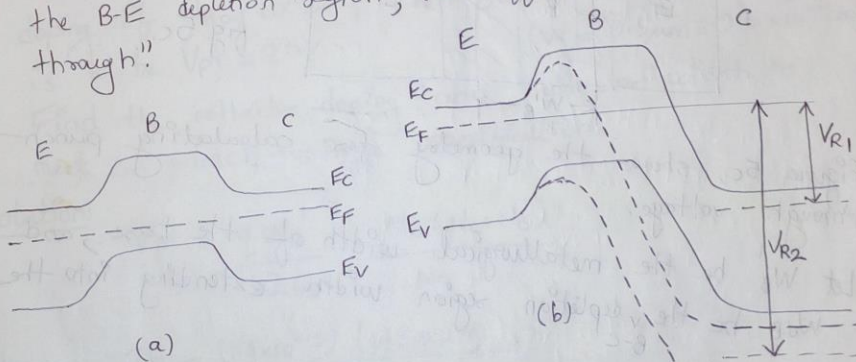 the B-E depletion region,
through".
E B C
EC
EF
EV
(a)
E B C
EC
EF
EV
VR1
VR2
(b)